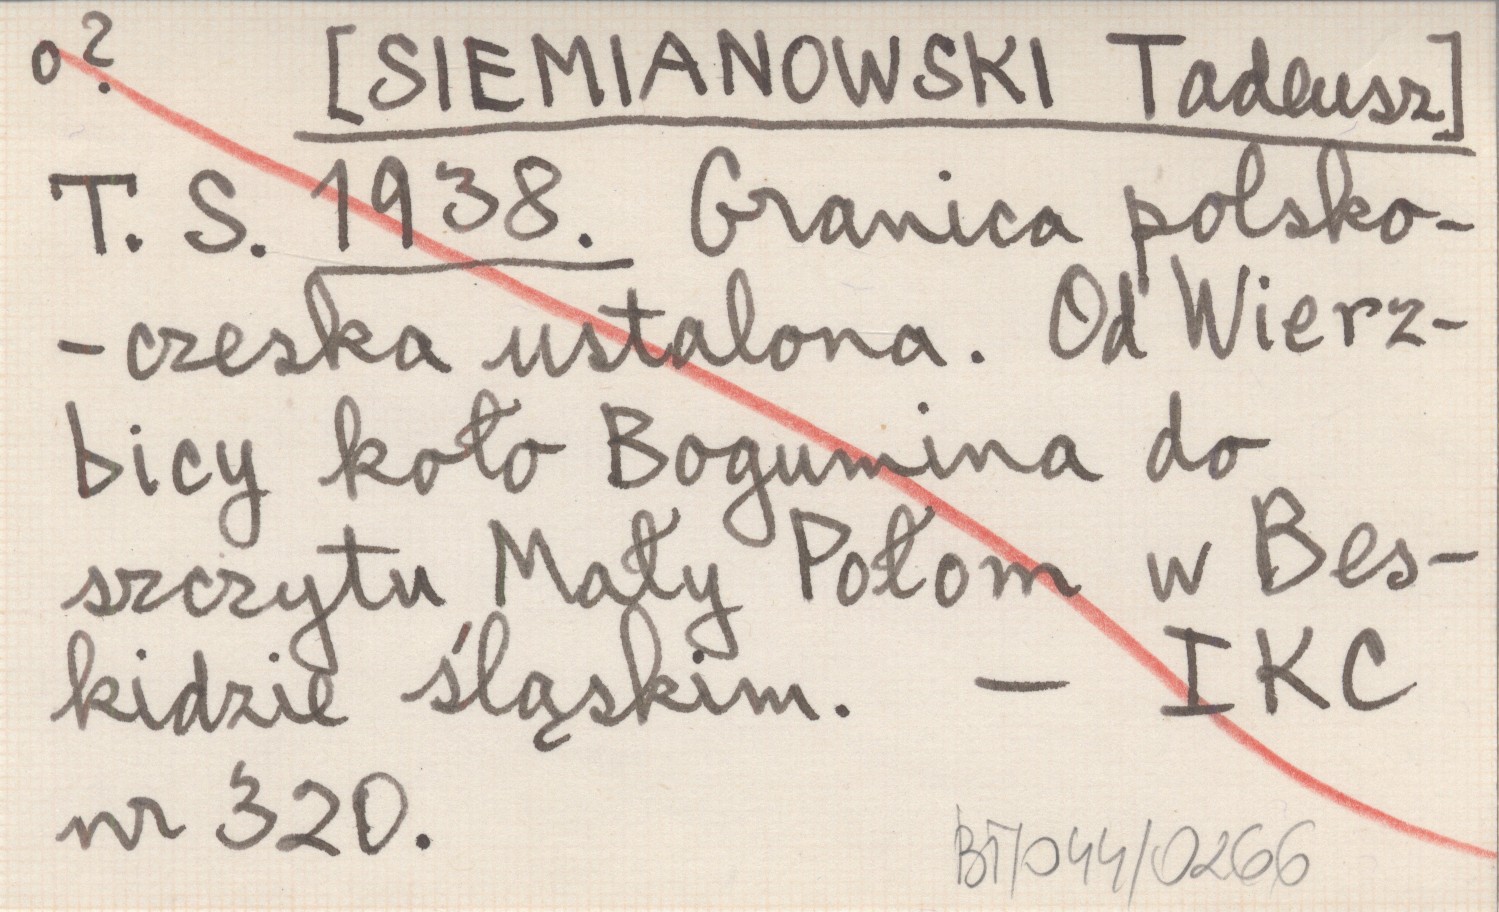 o? [SIEMIANOWSKI Tadeusz]
T. S. 1938. Granica polsko-
-czeska ustalona. Od Wierz-
bicy koło Bogumina do
szczytu Mały Połom w Bes-
kidzie śląskim. — IKC
nr 320.
BT/044/0266